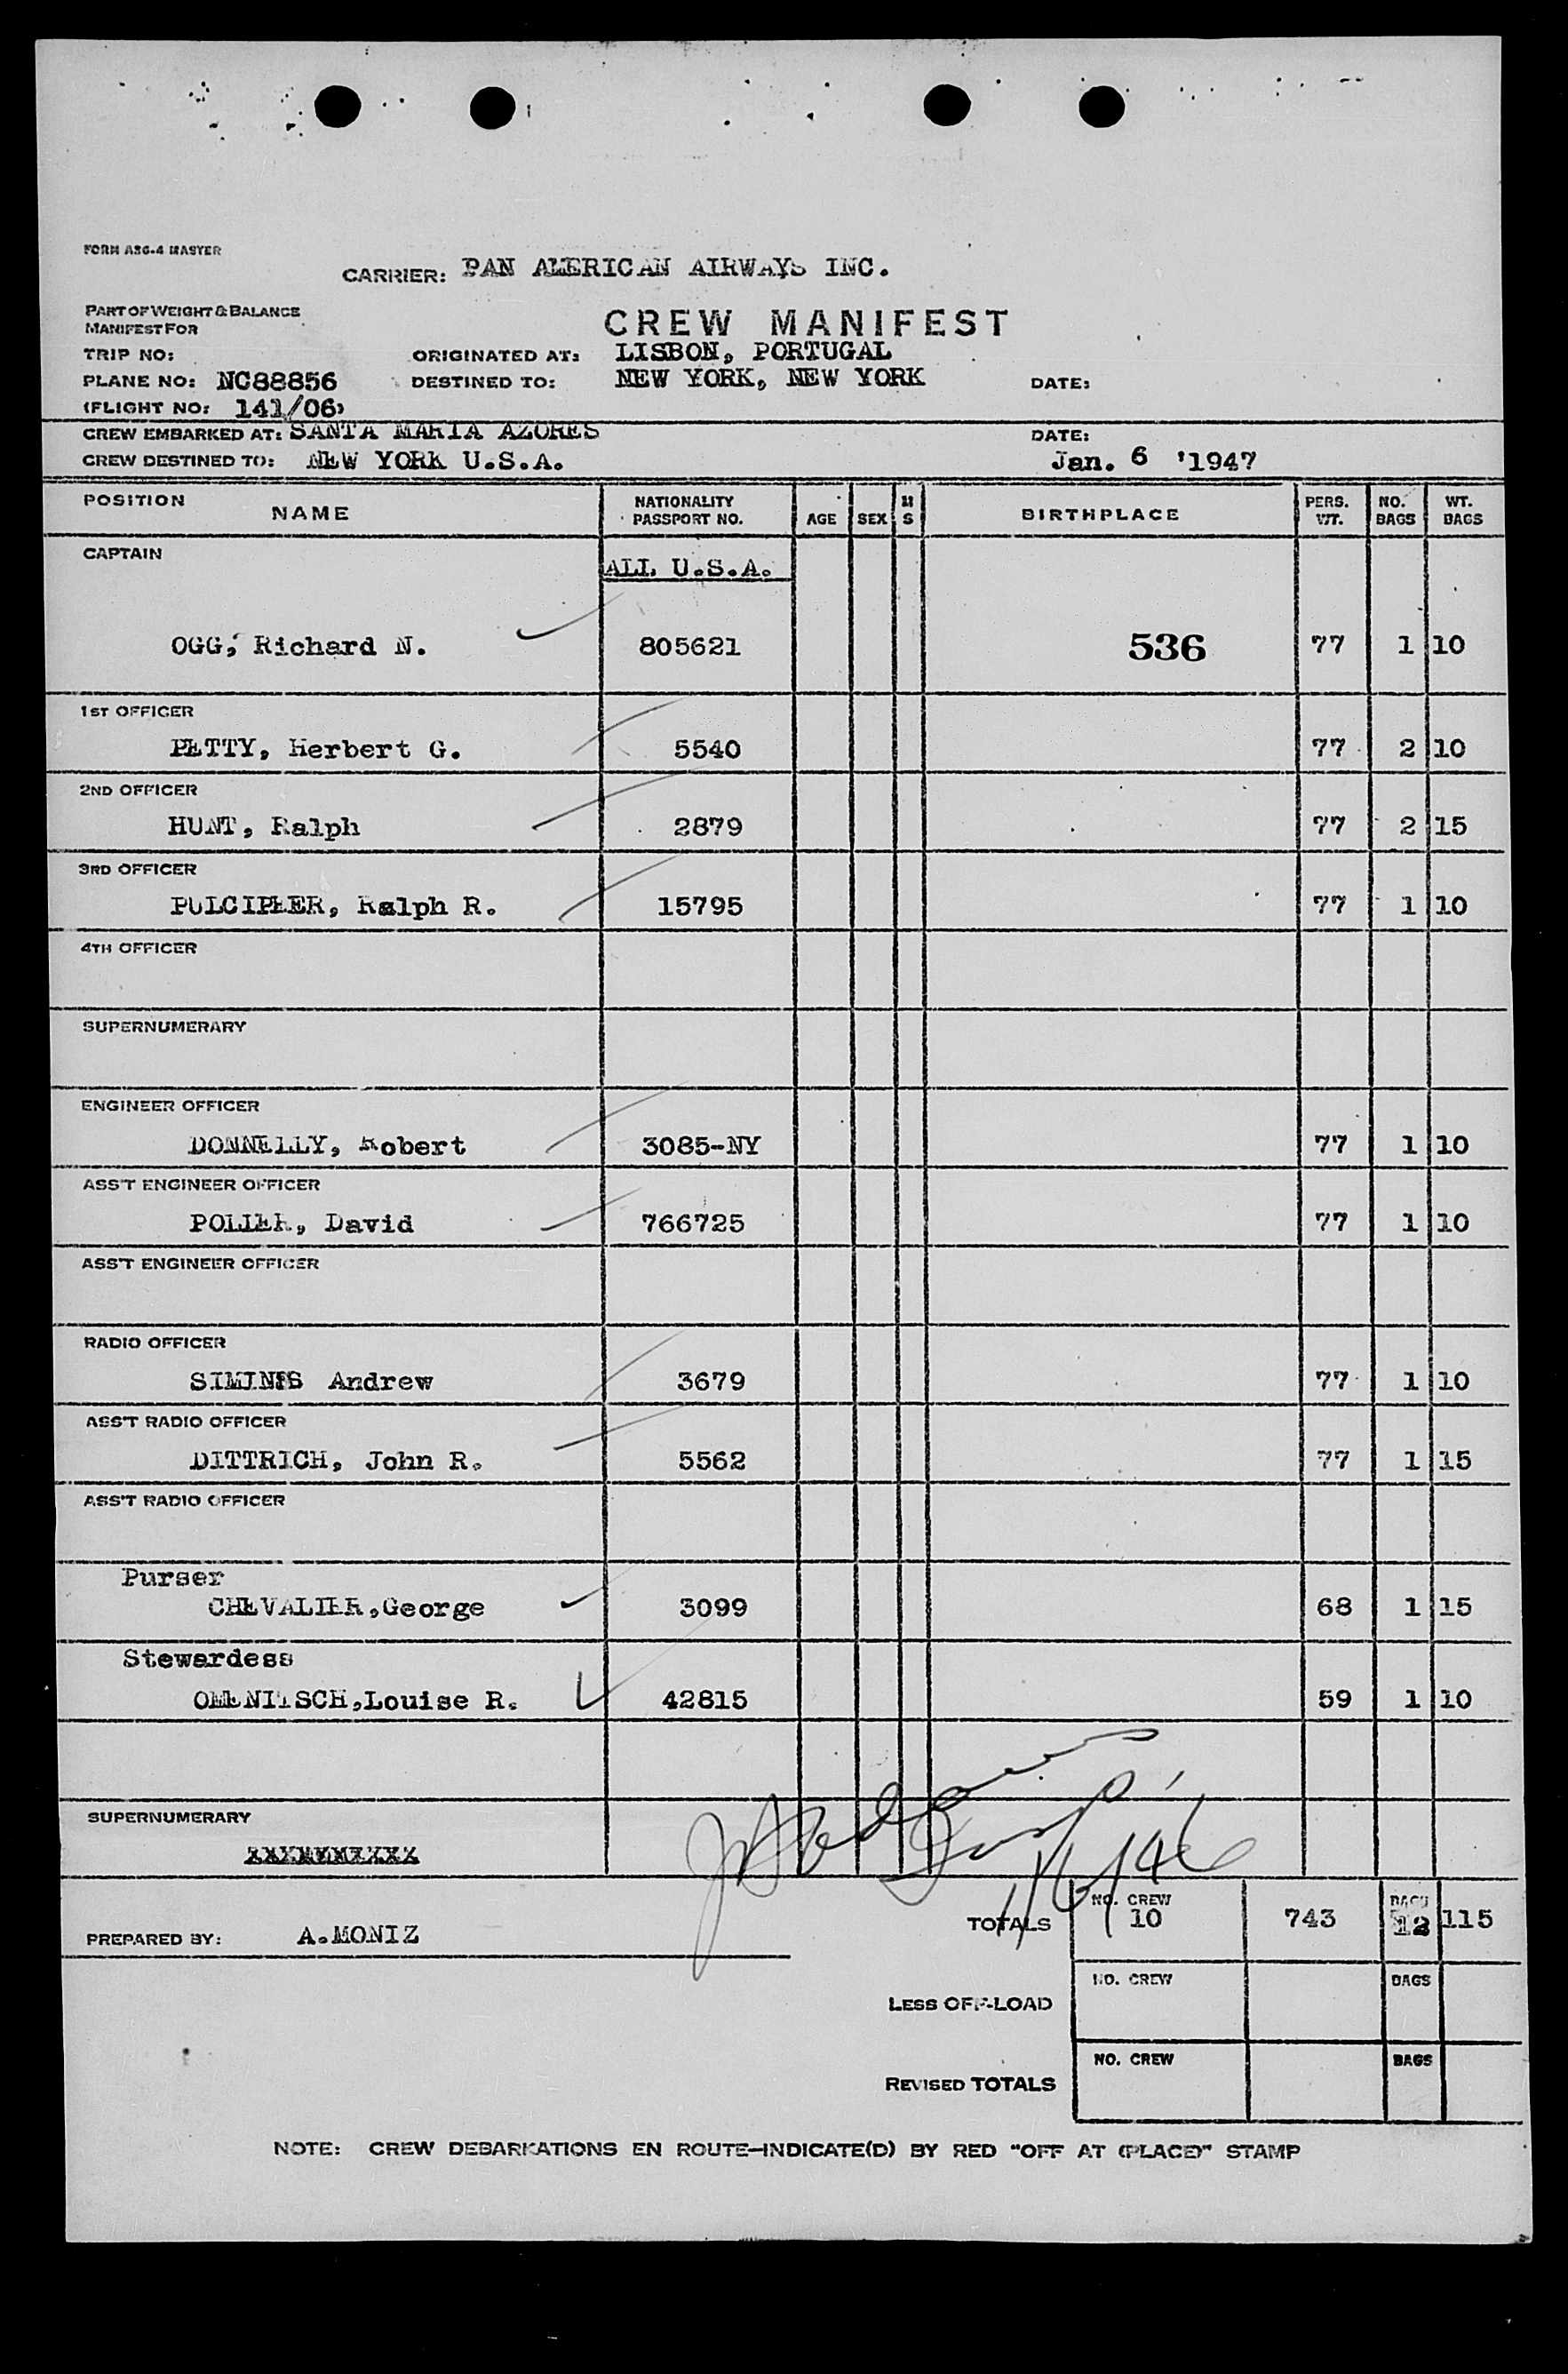 FORM ASG-4 MASTER
CARRIER: PAN AMERICAN AIRWAYS INC.
PART OF WEIGHT & BALANCE
MANIFEST FOR
CREW MANIFEST
TRIP NO: ORIGINATED AT: LISBON, PORTUGAL
PLANE NO: NC88856 DESTINED TO: NEW YORK, NEW YORK DATE:
(FLIGHT NO: 141/06)
CREW EMBARKED AT: SANTA MARIA AZORES DATE:
CREW DESTINED TO: NEW YORK U.S.A. Jan. 6 '1947
POSITION NAME NATIONALITY PASSPORT NO. AGE SEX M S BIRTHPLACE PERS. WT. NO. BAGS WT. BAGS
CAPTAIN
ALL U.S.A.
OGG, Richard N. 805621 536 77 1 10
1ST OFFICER
PETTY, Herbert G. 5540 77 2 10
2ND OFFICER
HUNT, Ralph 2879 77 2 15
3RD OFFICER
PULCIPHER, Ralph R. 15795 77 1 10
4TH OFFICER
SUPERNUMERARY
ENGINEER OFFICER
DONNELLY, Robert 3085-NY 77 1 10
ASS'T ENGINEER OFFICER
POLIER, David 766725 77 1 10
ASS'T ENGINEER OFFICER
RADIO OFFICER
Andrew 3679 77 1 10
ASS'T RADIO OFFICER
DITTRICH, John R. 5562 77 1 15
ASS'T RADIO OFFICER
Purser
CHEVALIER,George 3099 68 1 15
Stewardess
Louise R. 42815 59 1 10
SUPERNUMERARY
1/6/46
TOTALS NO. CREW 10 743 BAGS 12 115
PREPARED BY: A.MONIZ
LESS OFF-LOAD NO. CREW BAGS
REVISED TOTALS NO. CREW BAGS
NOTE: CREW DEBARKATIONS EN ROUTE—INDICATE(D) BY RED "OFF AT (PLACE)" STAMP